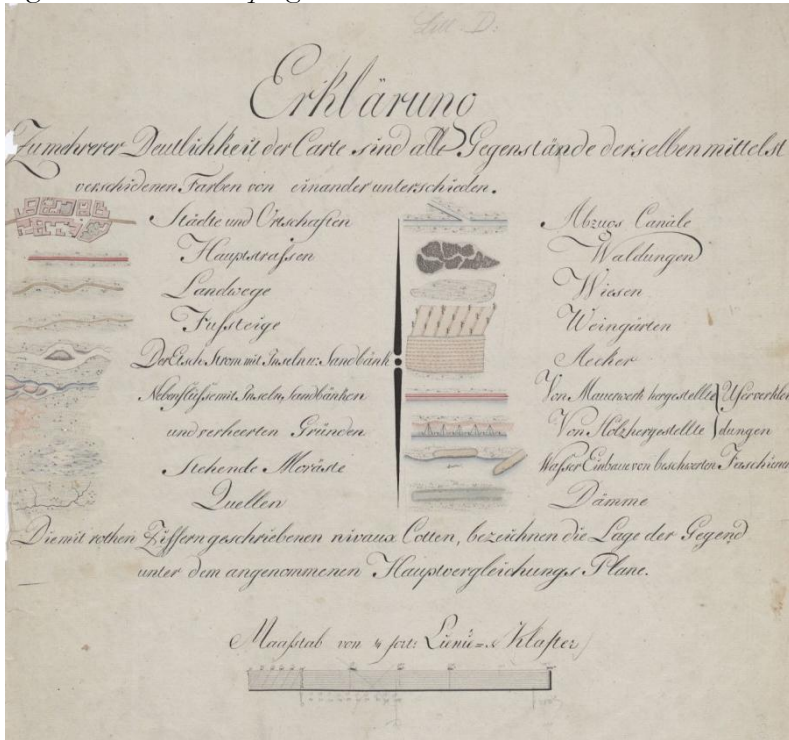 Litt. D.
Erklärung
Zu mehrerer Deutlichkeit der Carte sind alle Gegenstände derselben mittelst
verschidenen Farben von einander unterschieden.
Städte und Ortschaften
Hauptstraſsen
Landwege
Fuſsteige
Der Etsch Strom mit Inseln u: Sandbänk
Nebenflüſse mit Inseln, Sandbänken
und verheerten Gründen
Stehende Moräste
Quellen
Abzugs Canäle
Waldungen
Wiesen
Weingärten
Aecker
Von Mauerwerk hergestellte Uferverklei
Von Holz hergestellte dungen
Waſser Einbaue von beschwerten Faschinen
Dämme
Die mit rothen Ziffern geschriebenen nivaux Cotten, bezeichnen die Lage der Gegend
unter dem angenommenen Hauptvergleichungs Plane.
Maaſstab von 4 Klafter